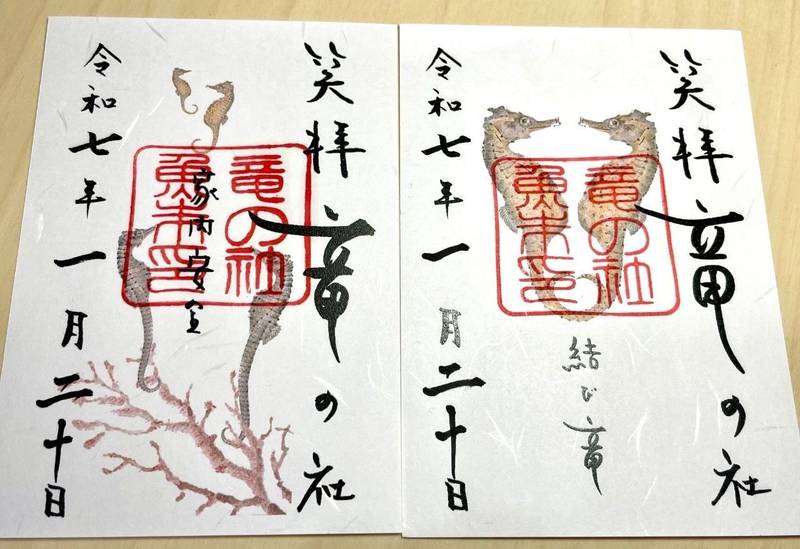 笑拝 竜の社
竜の社
魚朱印
家内安全
令和七年一月二十日
笑拝 竜の社
竜の社
魚朱印
結び竜
令和七年一月二十日